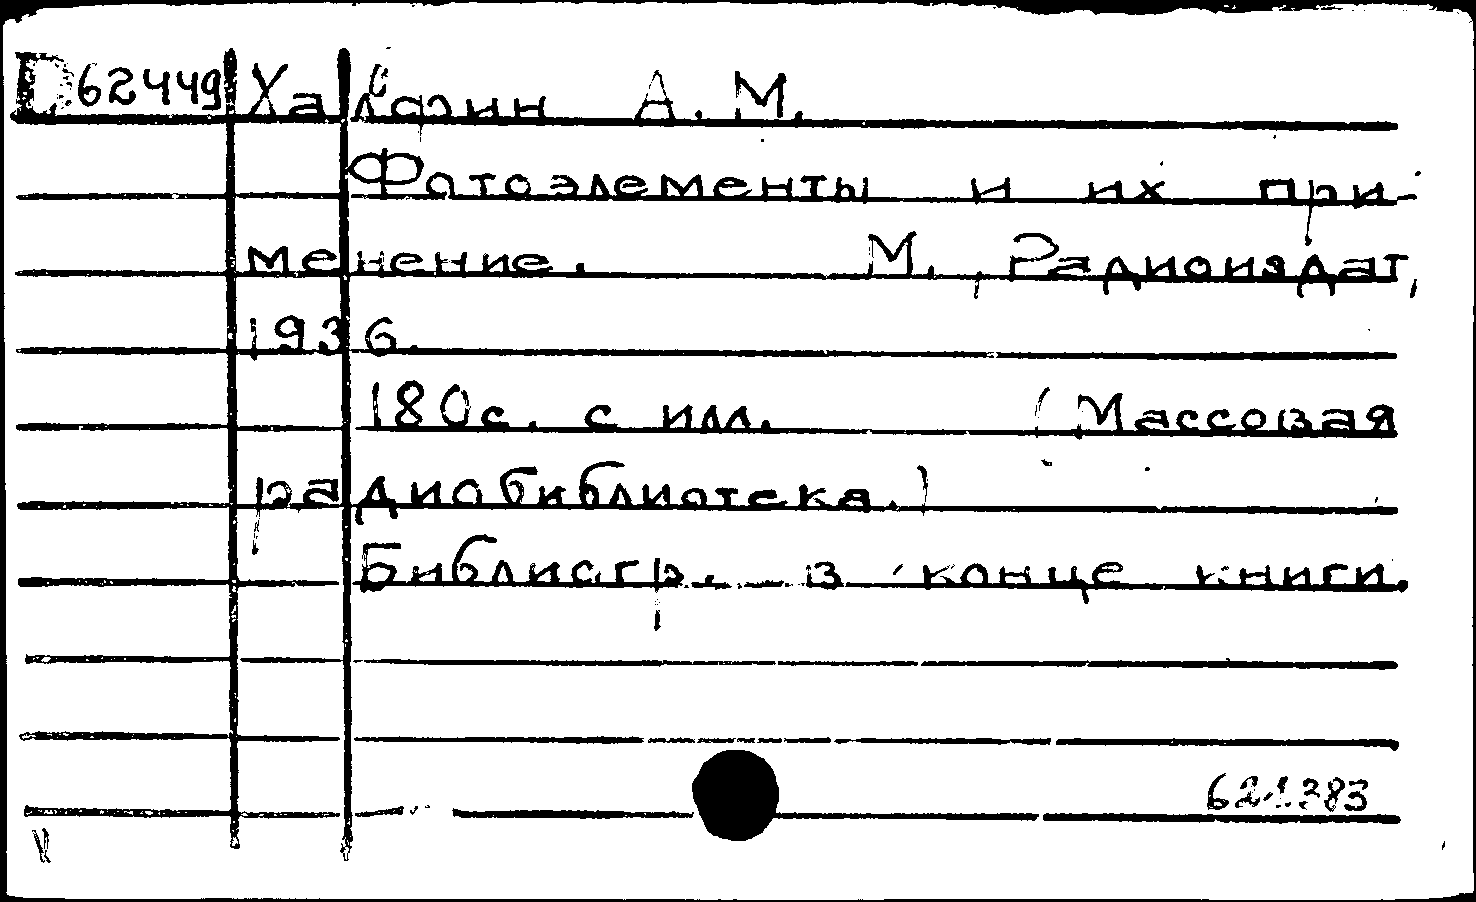 D62449 Халфин А. М.
Фотоэлементы и их при-
менение. М., Радиоиздат,
1936.
180с. с илл. (Массовая
радиобиблиотека.)
Библиогр. в конце книги.
621.383